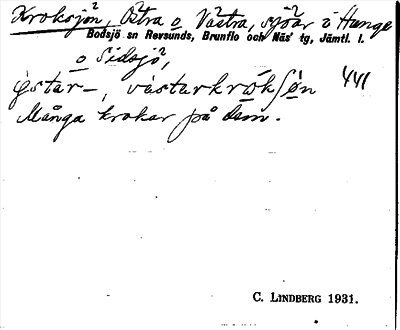 Kroksjön, Östra o Västra, sjöar i Hunge
Bodsjö sn Revsunds, Brunflo och Näs' tg, Jämtl. l.
o Sidsjö,
östar–, västarkrókſøn
441
Många krokar på dem.
C. LINDBERG 1931.